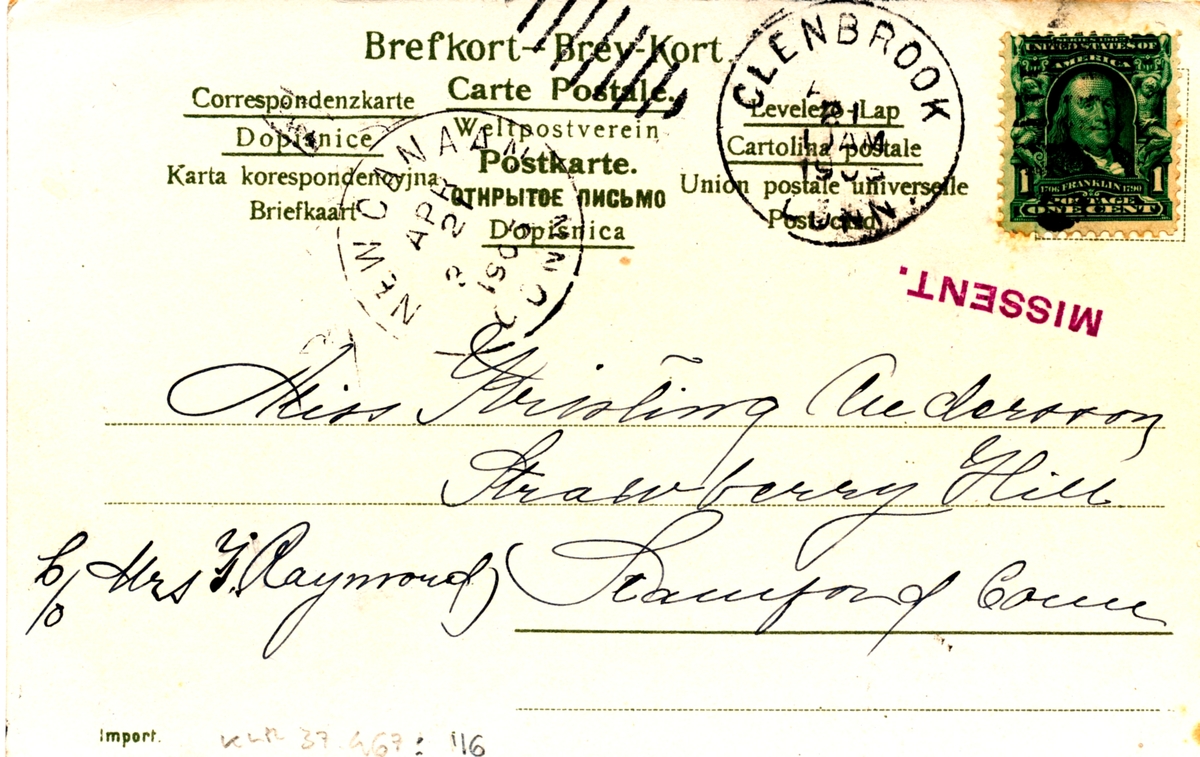 Brefkort – Brev-Kort
Correspondenzkarte
Carte Postale.
Levelező-Lap
Dopisnice
Weltpostverein
Cartolina postale
Karta korespondencyjna
Postkarte.
Union postale universelle
Briefkaart
ОТКРЫТОЕ ПИСЬМО
Postcard
Dopisnica
NEW CANAAN CONN
APR
21
GLENBROOK
CONN.
21
1 AM
SERIES 1902
UNITED STATES OF
AMERICA
1706 FRANKLIN 1790
1 POSTAGE 1
ONE CENT
MISSENT.
Miss Kristing Andersson
Strawberry Hill
c/o Mrs Raymond
Stamford Conn
Import.
37 467: 116